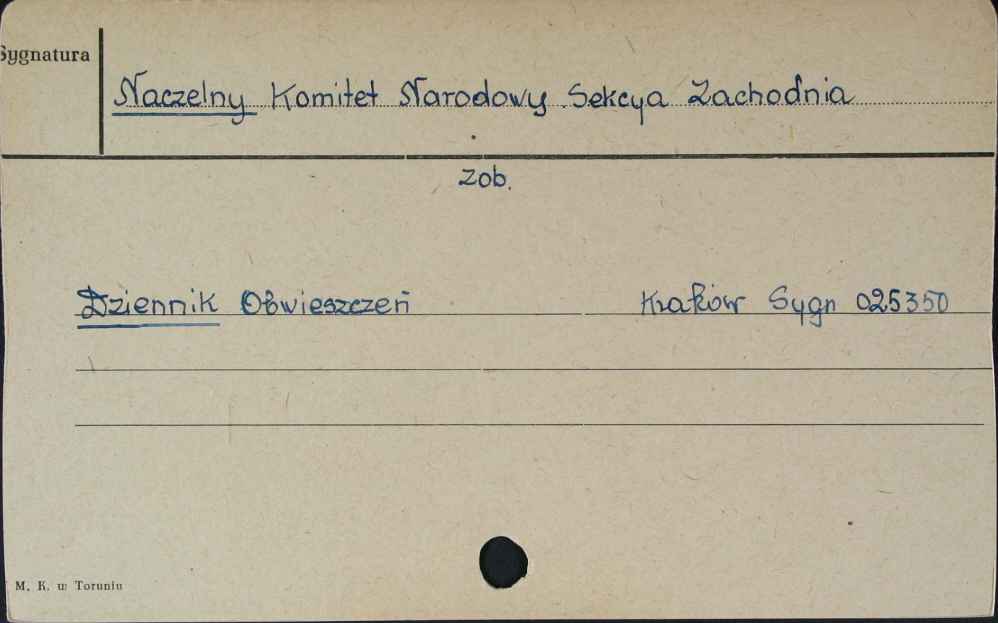 Sygnatura
Naczelny Komitet Narodowy. Sekcya Zachodnia
zob.
Dziennik Obwieszczeń Kraków Sygn 025350
M. K. w Toruniu